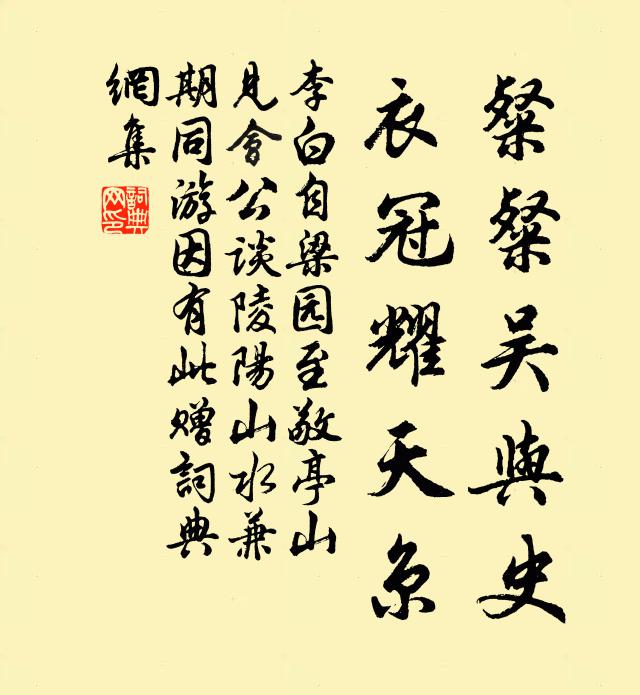 粲粲吴與史
衣冠耀天京
李白自梁园至敬亭山
見會公谈陵陽山水兼
期同游因有此赠詞典
網集
詞典
网印